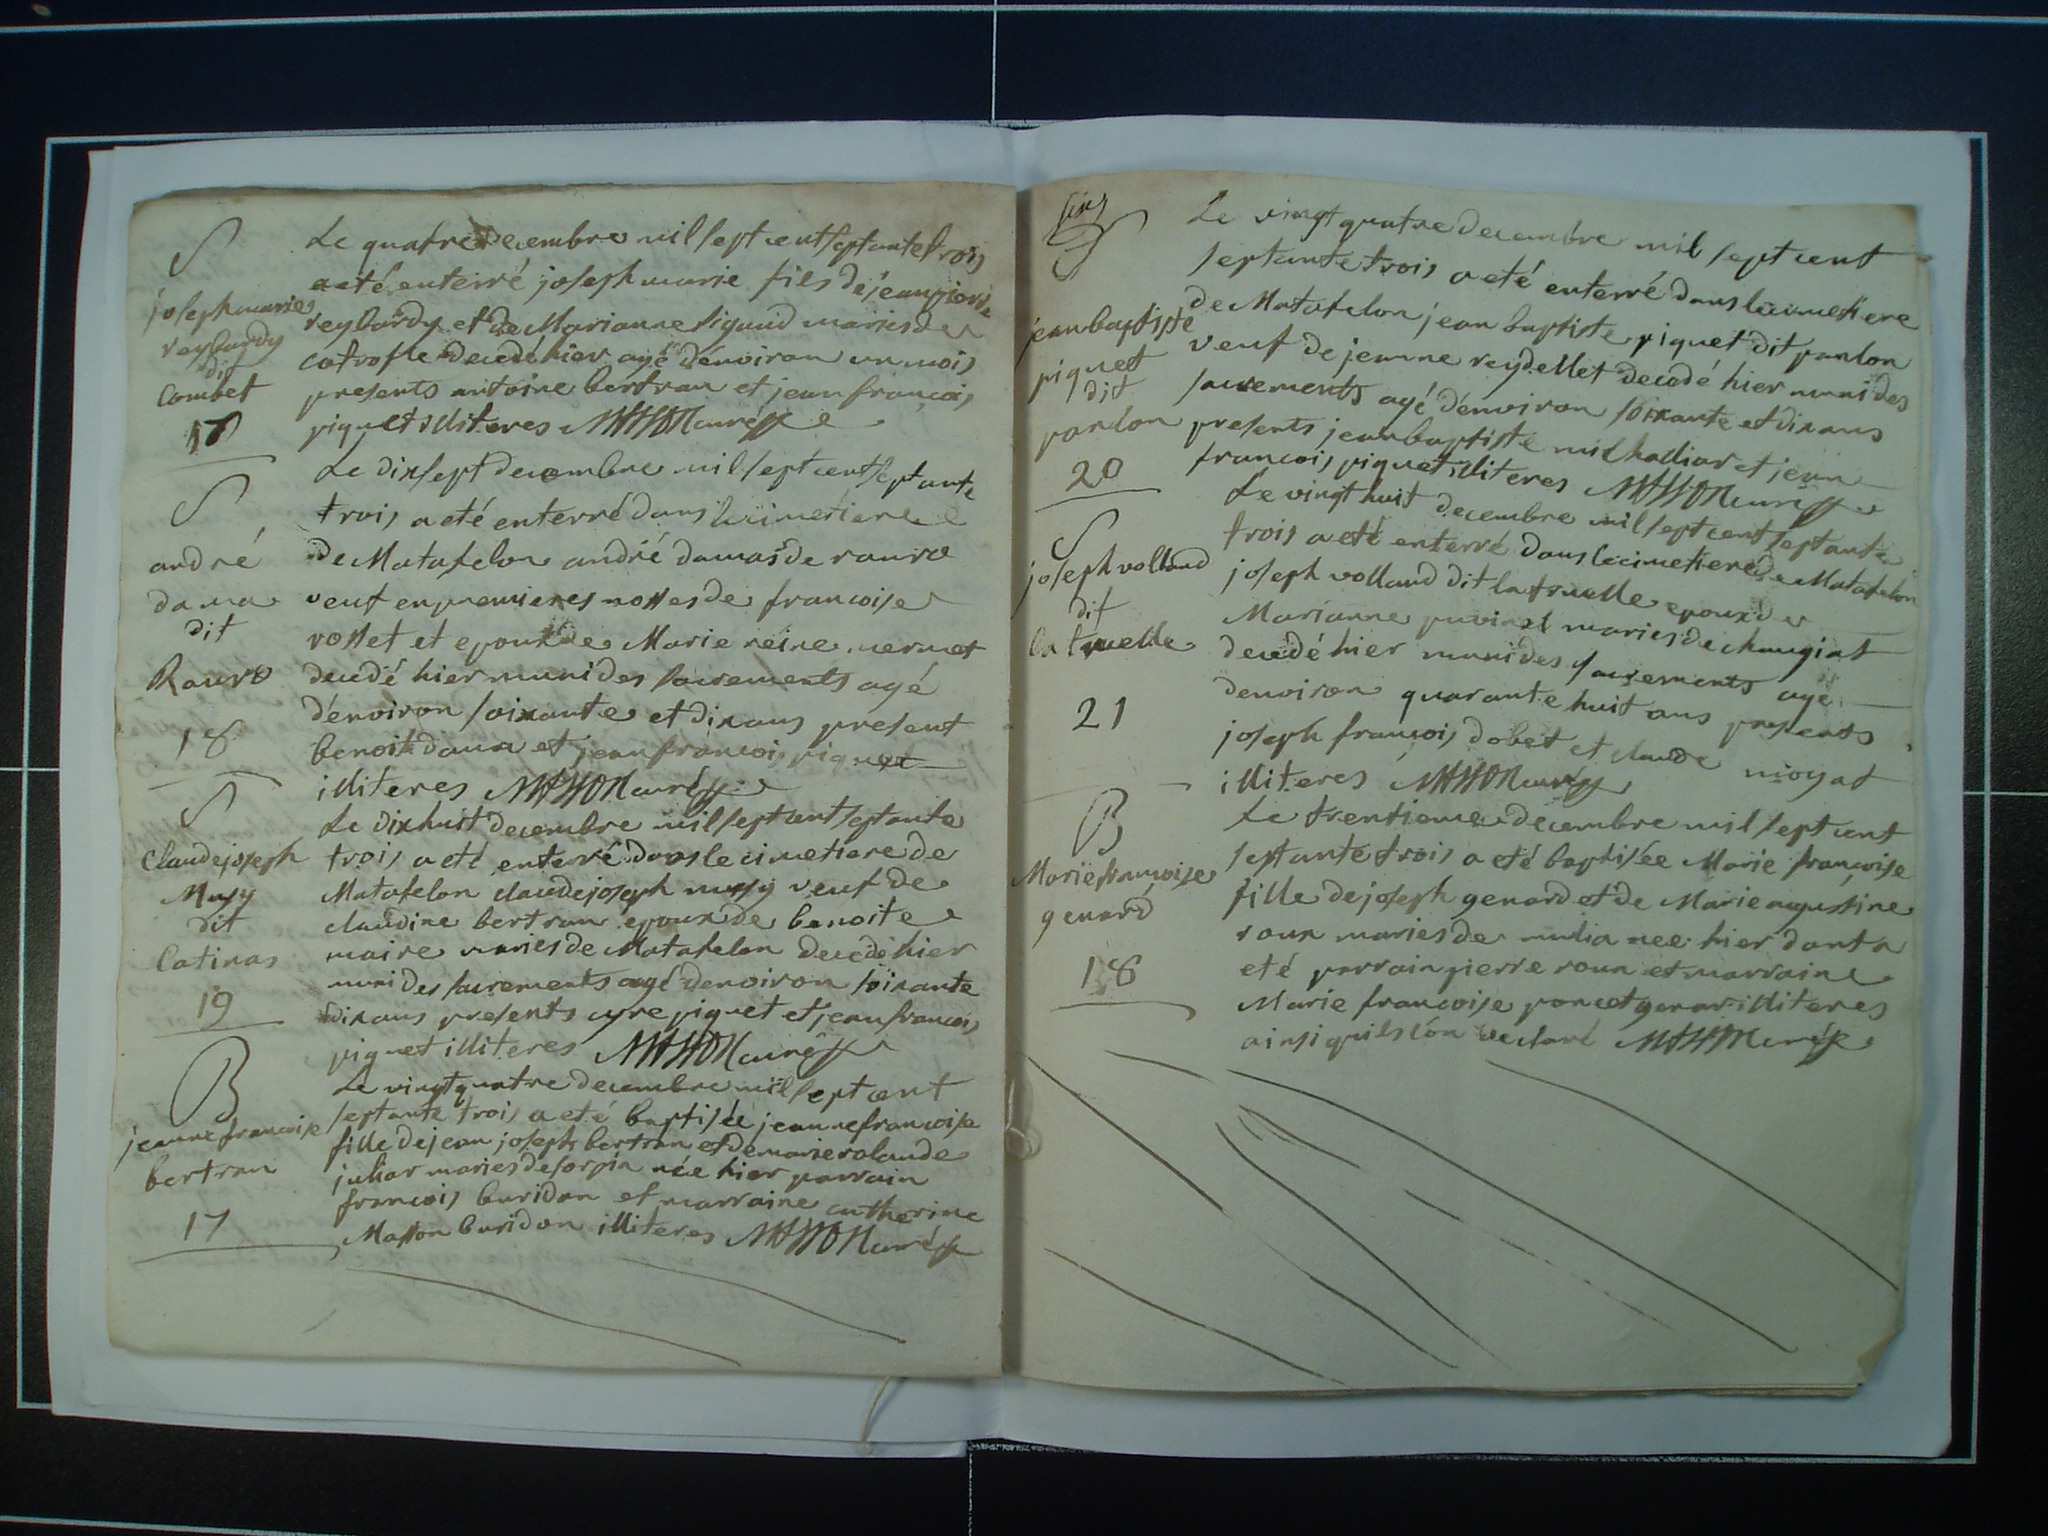 S
joseph marie
reybardy
dit
Combet
17
Le quatre decembre mil sept cent septante trois
a eté enterré joseph marie fils de jean pierre
reybardy et de Marianne sigaud mariés de
decedé hier agé d'énviron un mois
presents antoine bertran et jean francois
piquet illiteres MASSON curé
S
andré
dama
dit
Rauvo
18
Le dix sept decembre mil sept cent septante
trois a eté enterré dans le cimetiere
de Matafelon andré damas de
veuf en premieres nosses de francoise
rosset et epoux de Marie reine
decedé hier muni des sacrements agé
d'énviron soixante et dix ans present
benoit et jean francois piquet
illiteres MASSON curé
S
Claude joseph
Musy
dit
Catinas
19
Le dix huit decembre mil sept cent septante
trois a eté enterré dans le cimetiere de
Matafelon claude joseph musy veuf de
claudine bertran epoux de benoite
maire mariés de Matafelon decedé hier
muni des sacrements agé denviron soixante
dix ans presents cyre piquet et jean francois
piquet illiteres MASSON curé
B
jeanne francoise
bertran
17
Le vingt quatre decembre mil sept cent
septante trois a eté baptisée jeanne francoise
fille de jean joseph bertran et de marie claude
juliar mariés de corpia née hier parrain
francois buridon et marraine catherine
Masson buridon illiteres MASSON curé
S
jean baptiste
piquet
dit
pardon
20
Le vingt quatre decembre mil sept cent
septante trois a eté enterré dans le cimetiere
de Matafelon jean baptiste piquet dit pardon
veuf de jeanne reydellet decedé hier muni des
sacrements agé d'énviron soixante et dix ans
presents jean baptiste et jean
francois piquet illiteres MASSON curé
S
joseph volland
dit
la truelle
21
Le vingt huit decembre mil sept cent septante
trois a eté enterré dans le cimetiere de Matafelon
joseph volland dit la truelle epoux de
Marianne mariés de chaugiat
decedé hier muni des sacrements agé
denviron quarante huit ans presents
joseph francois dobet et claude moyat
illiteres MASSON curé
B
Marie francoise
genard
18
Le trentieme decembre mil sept cent
septante trois a eté baptisée Marie francoise
fille de joseph genard et de Marie augustine
roux mariés de née hier dont a
eté parrain pierre roux et marraine
Marie francoise poncet genar illiteres
ainsi quils lon declaré MASSON curé